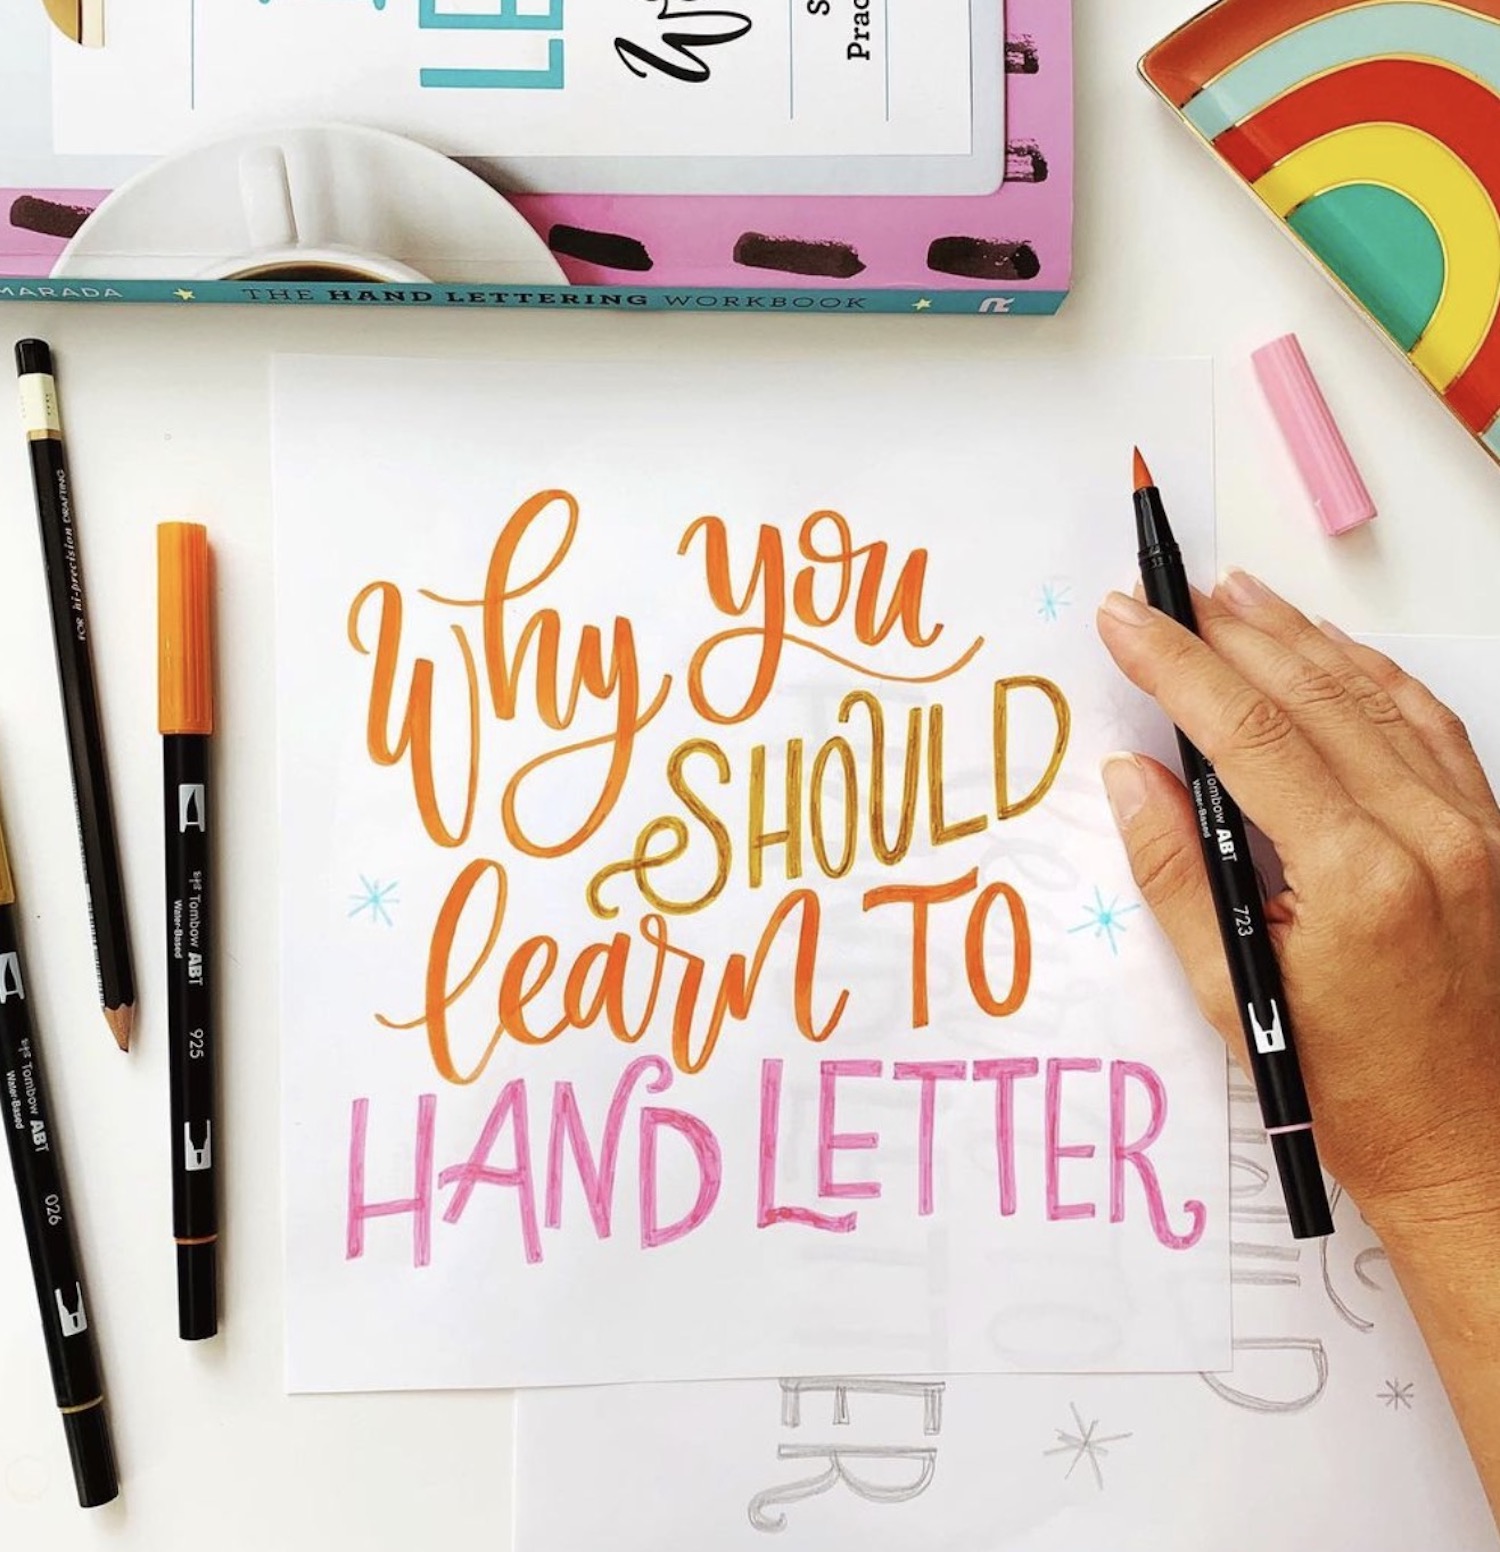 LE
W
S
Prac
MARADA ★ THE HAND LETTERING WORKBOOK ★
FOR hi-precision DRAFTING
Why you
SHOULD
learn TO
HAND LETTER
Tombow ABT
Water-Based
925
Tombow ABT
Water-Based
026
Tombow ABT
Water-Based
723
TER
OULD